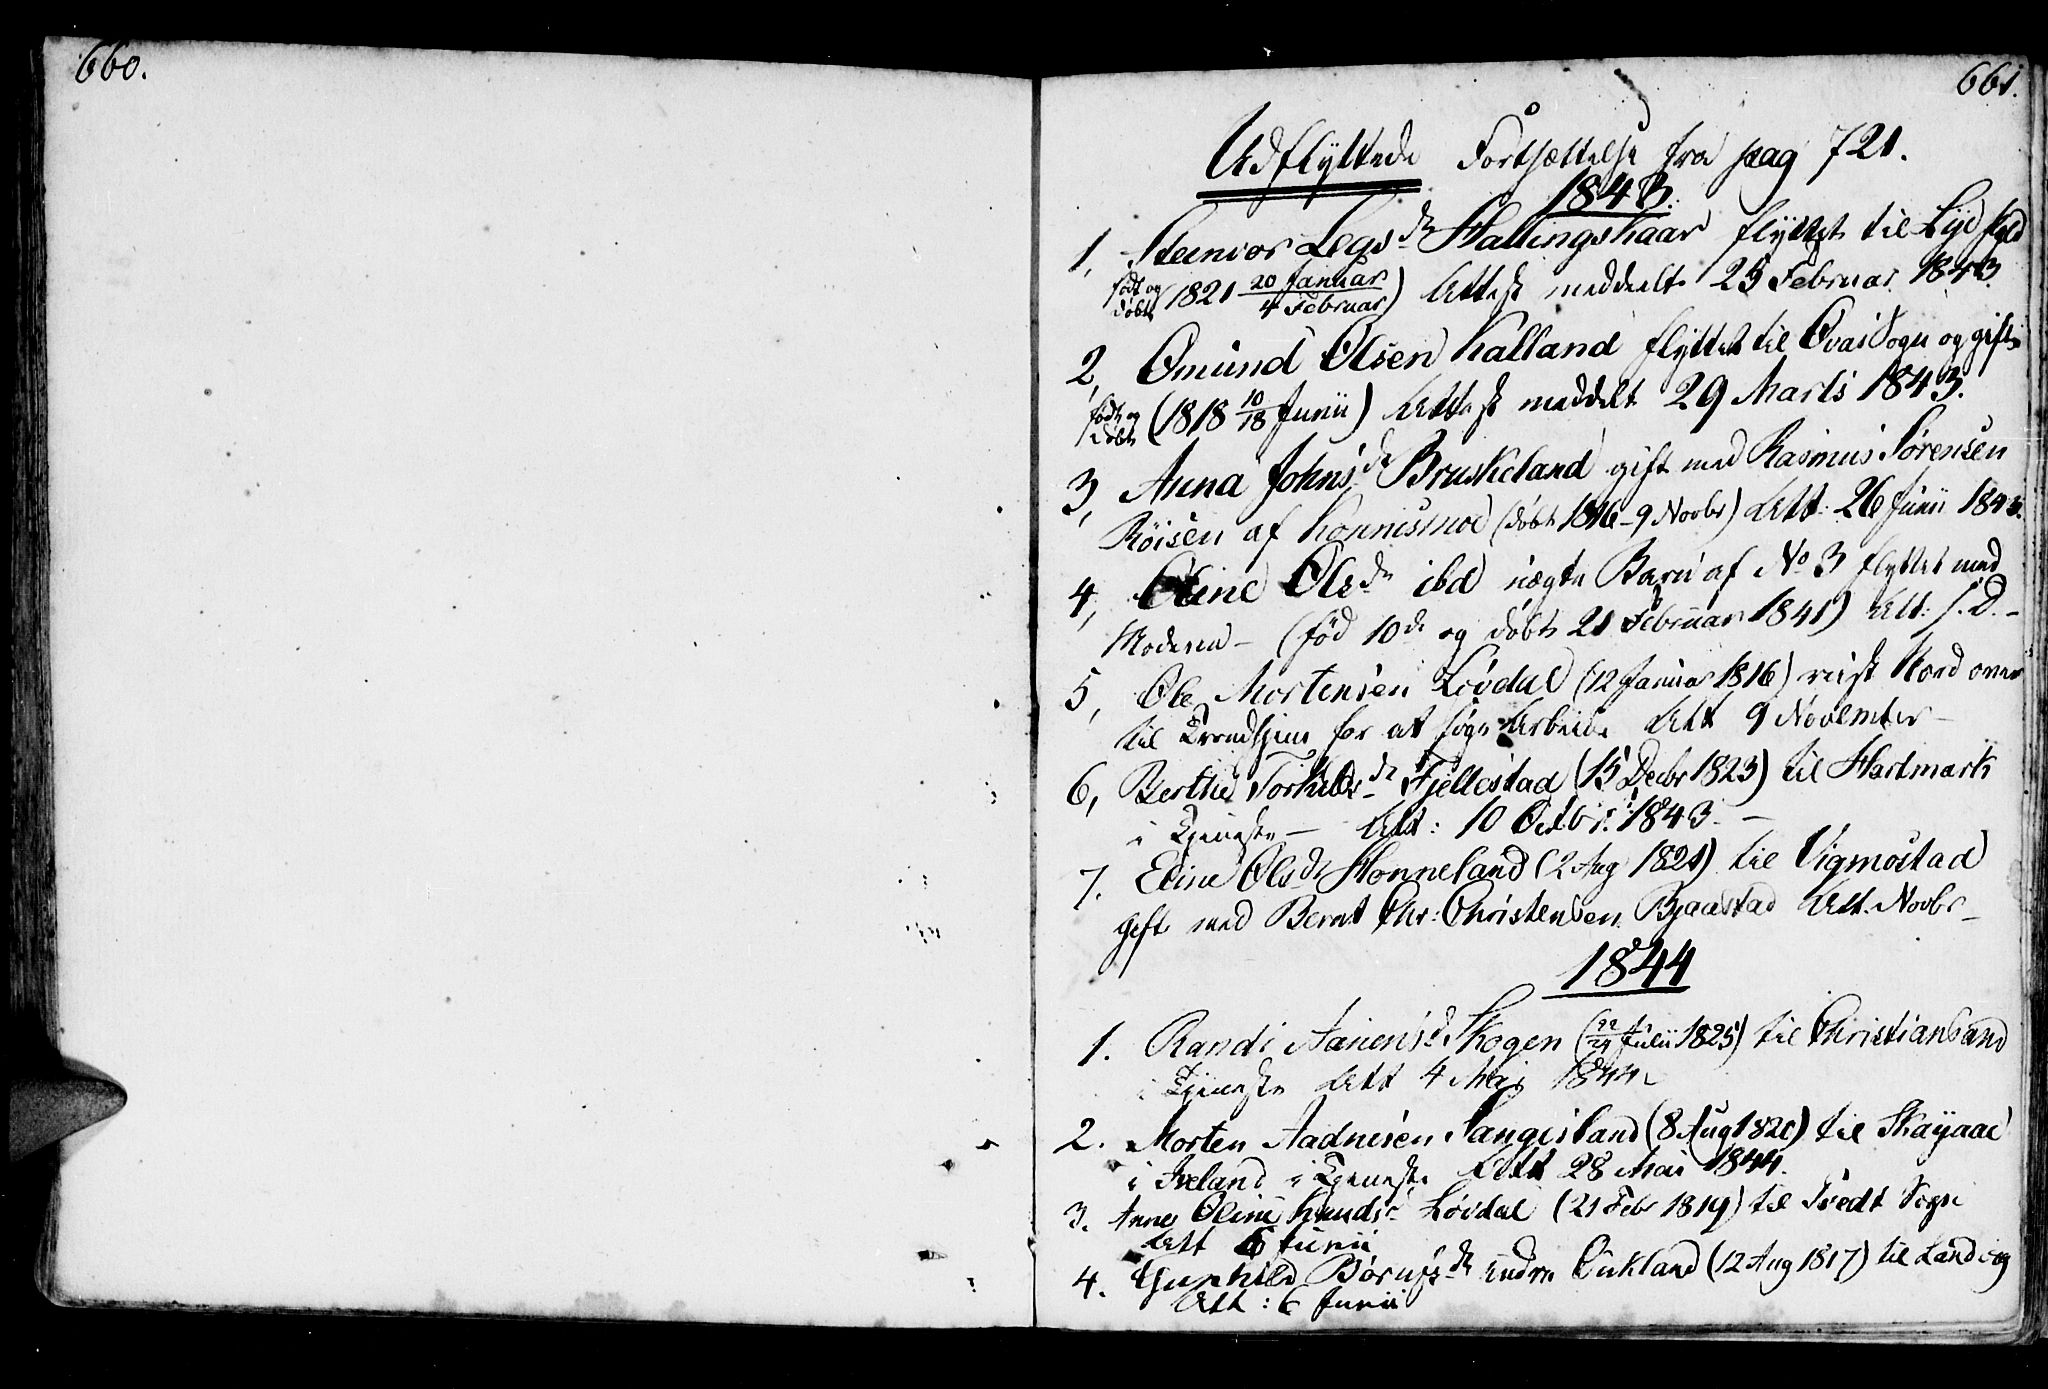 660.
661.
Udflyttede Fortsættelse fra pag 721.
1843.
1, Steinvor Legsdr Hallingskaar flyttet til
født og døbt 1821 20 Januar / 4 Februar) Attest meddeelt 25 Februar 1843.
2, Omund Olsen Kalland flyttet til Sogn og gift
født og døbt (1818 10/18 Junii) Attest meddelt 29 Marts 1843.
3, Anna Johnsdr Bruskeland gift med Rasmus Sørensen
Röisen af Konnismoe (døbt 1816 - 9 Novbr) Att: 26 Junii 1843.
4, Oline Olsdr ibd uægte Barn af No 3 flyttet med
Moderen - (fød 10de og døbt 21 Februar 1841) Att: s. D. -
5, Ole Mortensen Lövdal (12 Januar 1816) reist Nord over
til Trondhjem for at søge Arbeide Att 9 November -
6, Berthe Torkildsdr Fjellestad (15 Decbr 1823) til Hartmark
i Tjeneste - Att: 10 Octbr: 1843. -
7. Eline Olsdr Honneland (2 Aug 1821) til Vigmostad
gift med Bernt Chr: Christensen Bjaastad Att. Novbr -
1844
1. Randi Aanensd Skogen (22/24 Julii 1825) til Christiansand
i Tjeneste Att 4 Mai 1844.
2. Morten Aadnesen Sangesland (8 Aug 1820) til
i Iveland i Tjeneste Att 28 Mai 1844.
3. Anne Oline Knudsd Lövdal (21 Febr 1819) til Tvedt Sogn
Att 6 Junii
4. Gunhild Börufsdr indre Öikland (12 Aug 1817) til Landvig
Att: 6 Junii